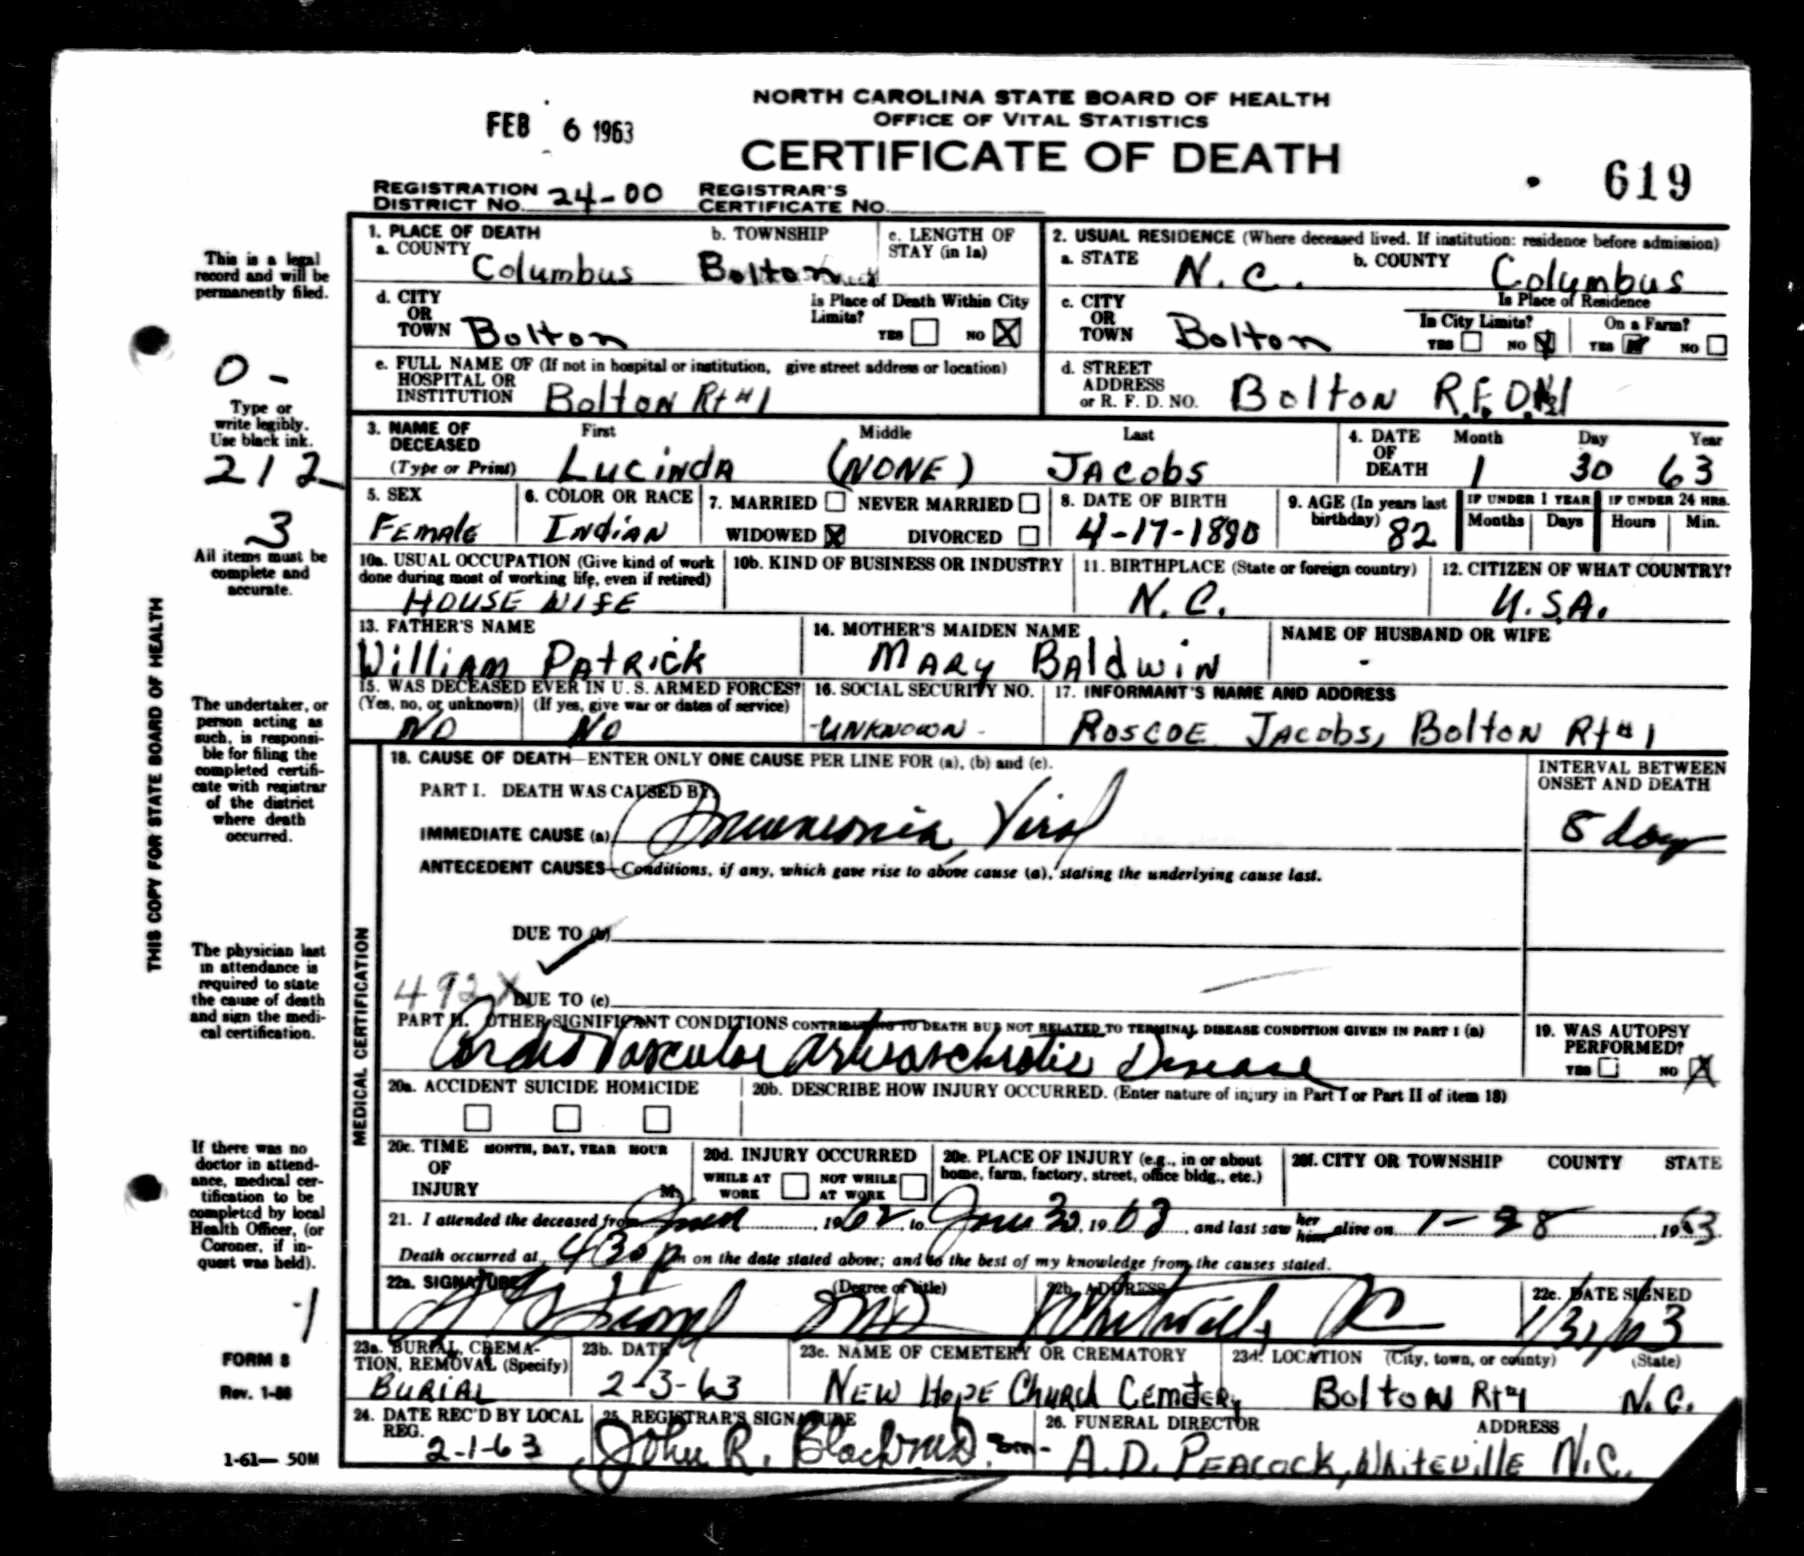 NORTH CAROLINA STATE BOARD OF HEALTH
OFFICE OF VITAL STATISTICS
CERTIFICATE OF DEATH
FEB 6 1963
619
REGISTRATION DISTRICT NO. 24-00 REGISTRAR'S CERTIFICATE NO.
This is a legal record and will be permanently filed.
0 -
Type or write legibly. Use black ink.
212
3
All items must be complete and accurate.
THIS COPY FOR STATE BOARD OF HEALTH
The undertaker, or person acting as such, is responsible for filing the completed certificate with registrar of the district where death occurred.
The physician last in attendance is required to state the cause of death and sign the medical certification.
If there was no doctor in attendance, medical certification to be completed by local Health Officer, (or Coroner, if inquest was held).
FORM 8
Rev. 1-
1-61— 50M
1. PLACE OF DEATH
a. COUNTY Columbus
b. TOWNSHIP Bolton
c. LENGTH OF STAY (in 1a)
2. USUAL RESIDENCE (Where deceased lived. If institution: residence before admission)
a. STATE N.C.
b. COUNTY Columbus
d. CITY OR TOWN Bolton
Is Place of Death Within City Limits? YES NO X
c. CITY OR TOWN Bolton
Is Place of Residence
In City Limits? YES NO X
On a Farm? YES X NO
e. FULL NAME OF HOSPITAL OR INSTITUTION (If not in hospital or institution, give street address or location) Bolton Rt #1
d. STREET ADDRESS or R. F. D. NO. Bolton R.F.D. #1
3. NAME OF DECEASED (Type or Print) First Middle Last
Lucinda (NONE) Jacobs
4. DATE OF DEATH Month Day Year
1 30 63
5. SEX Female
6. COLOR OR RACE Indian
7. MARRIED NEVER MARRIED WIDOWED X DIVORCED
8. DATE OF BIRTH 4-17-1880
9. AGE (In years last birthday) 82
IF UNDER 1 YEAR Months Days
IF UNDER 24 HRS. Hours Min.
10a. USUAL OCCUPATION (Give kind of work done during most of working life, even if retired) HOUSE WIFE
10b. KIND OF BUSINESS OR INDUSTRY
11. BIRTHPLACE (State or foreign country) N.C.
12. CITIZEN OF WHAT COUNTRY? U.S.A.
13. FATHER'S NAME William Patrick
14. MOTHER'S MAIDEN NAME Mary Baldwin
NAME OF HUSBAND OR WIFE -
15. WAS DECEASED EVER IN U. S. ARMED FORCES? (Yes, no, or unknown) (If yes, give war or dates of service) NO NO
16. SOCIAL SECURITY NO. -UNKNOWN-
17. INFORMANT'S NAME AND ADDRESS Roscoe Jacobs, Bolton Rt #1
MEDICAL CERTIFICATION
18. CAUSE OF DEATH—ENTER ONLY ONE CAUSE PER LINE FOR (a), (b) and (c).
INTERVAL BETWEEN ONSET AND DEATH
PART I. DEATH WAS CAUSED BY:
IMMEDIATE CAUSE (a) Pneumonia, Viral 5 day
ANTECEDENT CAUSES—Conditions, if any, which gave rise to above cause (a), stating the underlying cause last.
DUE TO (b)
492X
DUE TO (c)
PART II. OTHER SIGNIFICANT CONDITIONS CONTRIBUTING TO DEATH BUT NOT RELATED TO TERMINAL DISEASE CONDITION GIVEN IN PART I (a)
Cardio Vascular Arteriosclerotic Disease
19. WAS AUTOPSY PERFORMED? YES NO X
20a. ACCIDENT SUICIDE HOMICIDE
20b. DESCRIBE HOW INJURY OCCURRED. (Enter nature of injury in Part I or Part II of item 18)
20c. TIME OF INJURY MONTH, DAY, YEAR HOUR M.
20d. INJURY OCCURRED WHILE AT WORK NOT WHILE AT WORK
20e. PLACE OF INJURY (e.g., in or about home, farm, factory, street, office bldg., etc.)
20f. CITY OR TOWNSHIP COUNTY STATE
21. I attended the deceased from 1962, to Jan 30, 1963, and last saw her him alive on 1-28 1963
Death occurred at 430 p m on the date stated above; and to the best of my knowledge from the causes stated.
22a. SIGNATURE (Degree or title) MD
22b. ADDRESS Whiteville, NC
22c. DATE SIGNED 1/31/63
23a. BURIAL, CREMATION, REMOVAL (Specify) Burial
23b. DATE 2-3-63
23c. NAME OF CEMETERY OR CREMATORY New Hope Church Cemetery
23d. LOCATION (City, town, or county) (State) Bolton Rt 1 N.C.
24. DATE REC'D BY LOCAL REG. 2-1-63
25. REGISTRAR'S SIGNATURE John R. Black M.D.
26. FUNERAL DIRECTOR ADDRESS
A.D. Peacock, Whiteville N.C.